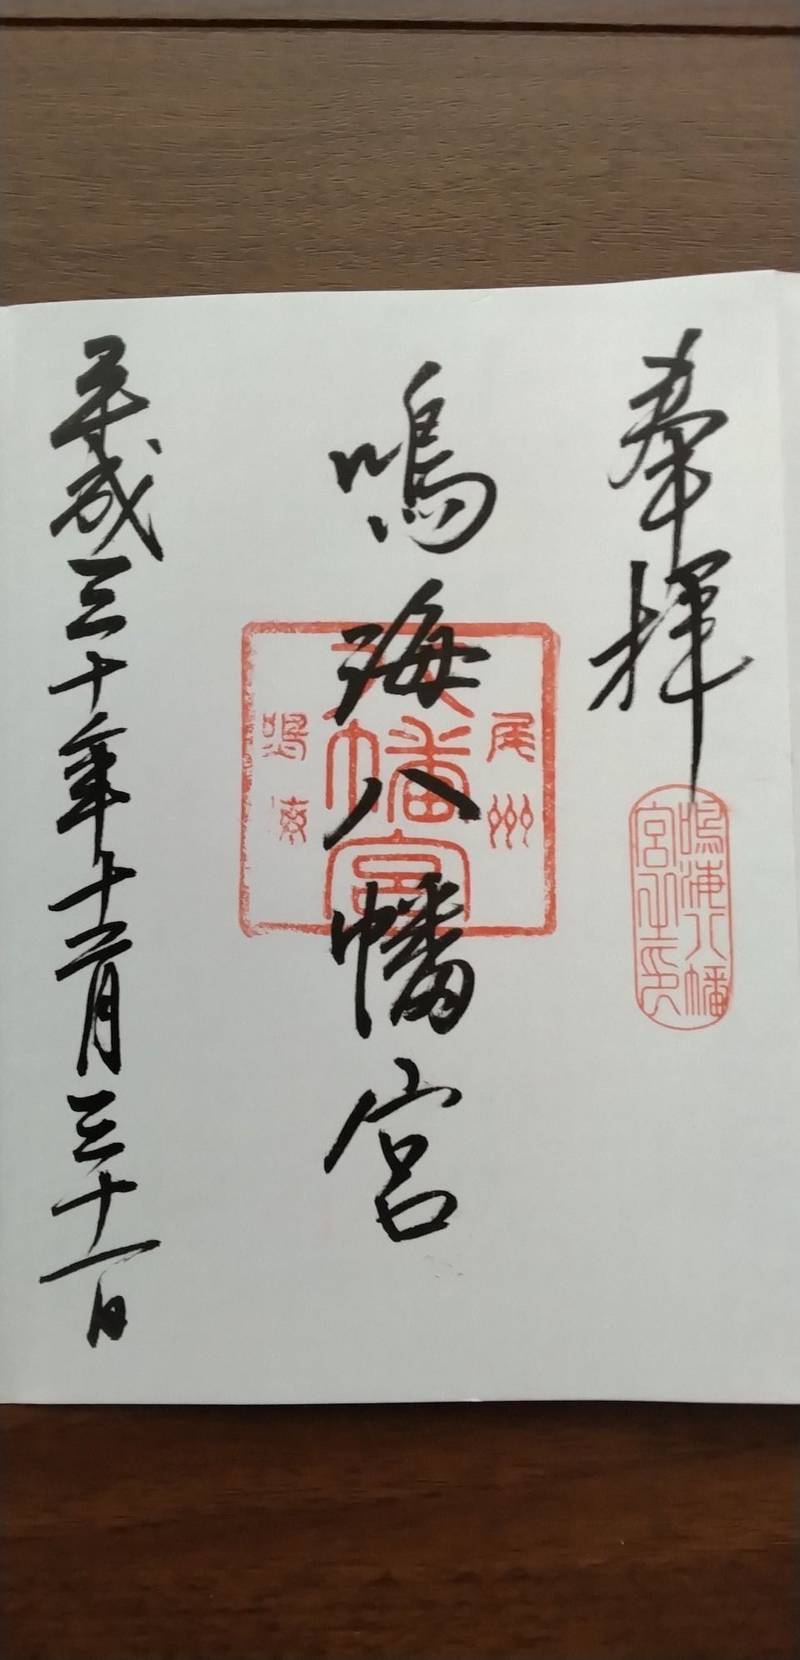 奉拝
鳴海八幡宮
平成三十年十二月三十一日
尾州
八幡宮
鳴海
鳴海八幡
宮之印